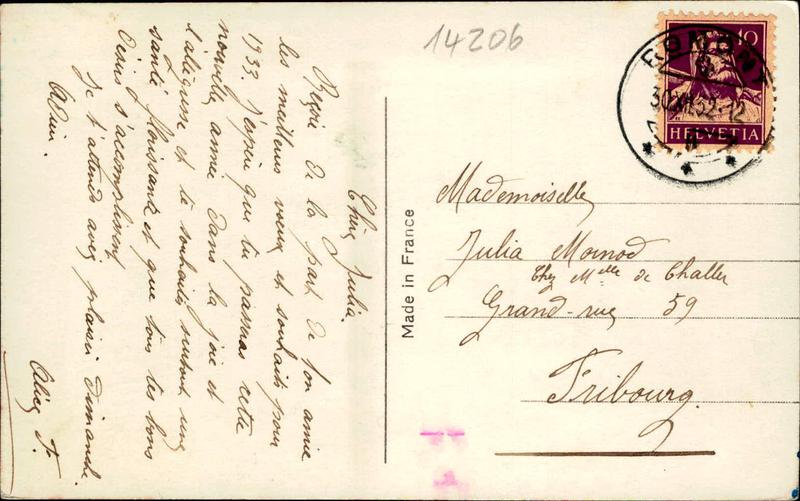 14206
ROMONT
30.XII.32-12
10
HELVETIA
Chère Julia.
Reçois de la part de ton amie
les meilleurs vœux et souhaits pour
1933. J'espère que tu passeras cette
nouvelle année dans la joie et
l'alégresse et te souhaite surtout une
santé florissante et que tous tes bons
désirs s'accomplissent
Je t'attends avec plaisir Dimanche.
Alice F.
Made in France
Mademoiselle
Julia Monod
Chez Mlle de Challes
Grand-rue 59
Fribourg.